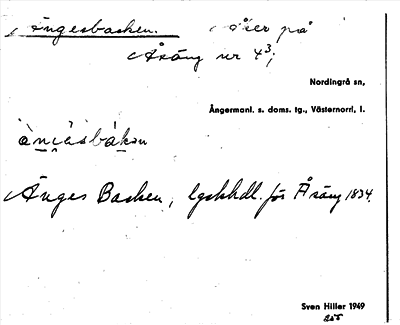 Ängesbacken. åker på
Åsäng nr 4³;
Nordingrå sn,
Ångermanl. s. doms. tg., Västernorrl, l.
Änges Backen, lgskhdl. för Åsäng 1834.
Sven Hiller 1949